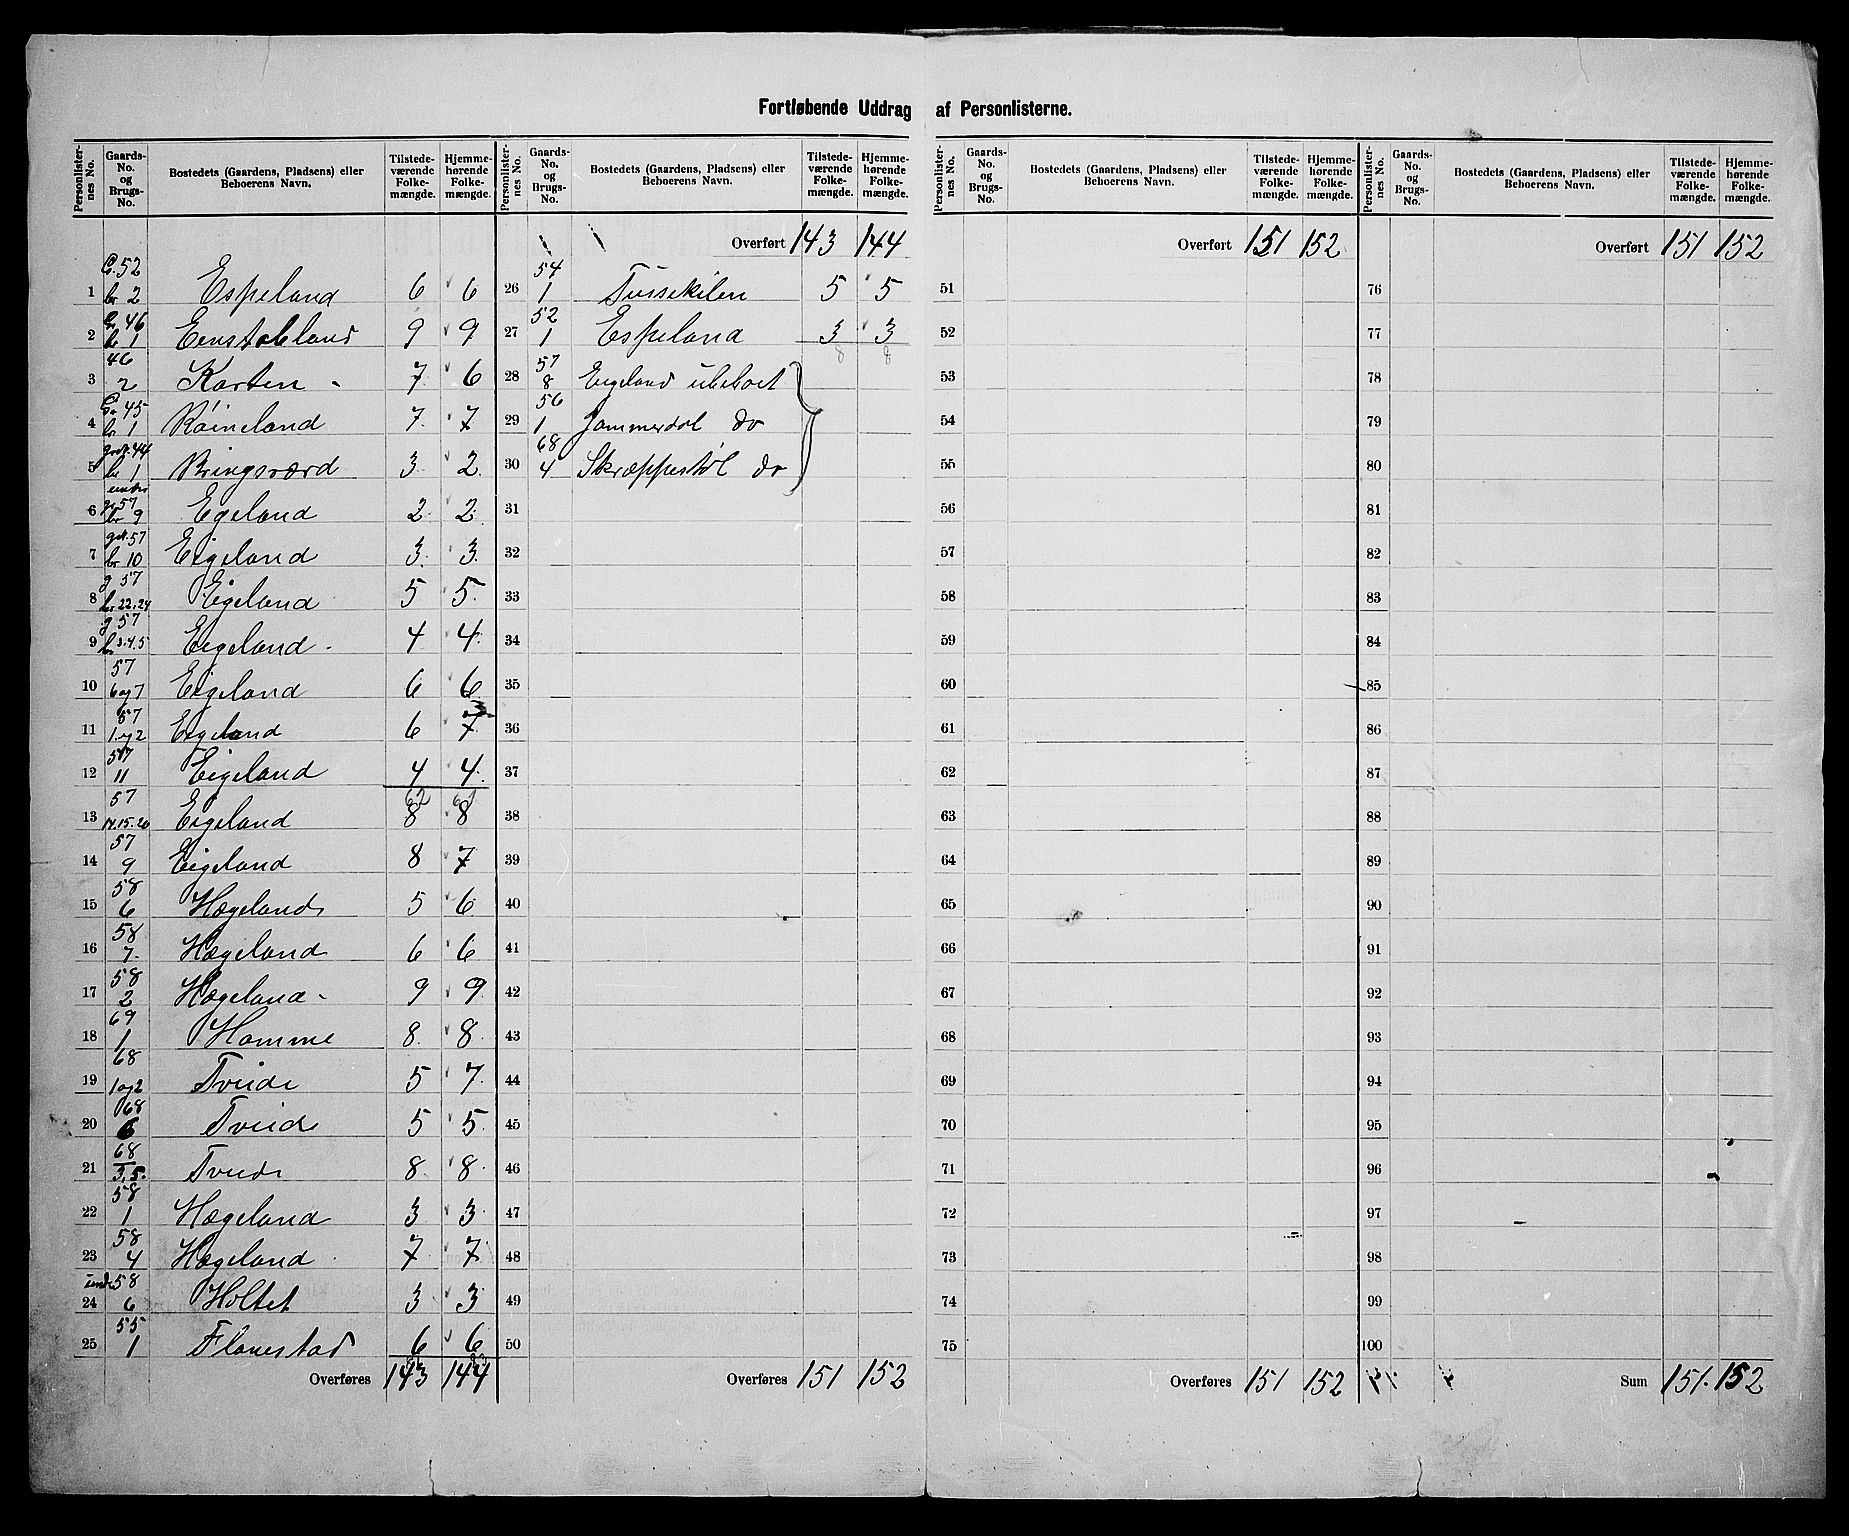 Fortløbende Uddrag af Personlisterne.
Personlister-nes No. | Gaards-No. og Brugs-No. | Bostedets (Gaardens, Pladsens) eller Beboerens Navn. | Tilstede-værende Folke-mængde. | Hjemme-hørende Folke-mængde.
1 | G. 52 br 2 | Espeland | 6 | 6
2 | Gr 46 br 1 | Eenstabland | 9 | 9
3 | 46 2 | Karten - | 7 | 6
4 | Gr 45 br 1 | Røineland | 7 | 7
5 | grdr. 44 br 1 | Ringsværd | 3 | 2
6 | under gr 57 br 9 | Egeland | 2 | 2
7 | grd. 57 br 10 | Eigeland | 3 | 3
8 | g 57 br 22.24 | Eigeland | 5 | 5
9 | g 57 br 3.4.5 | Eigeland | 4 | 4
10 | 57 6 og 7 | Eigeland | 6 | 6
11 | 57 1 og 2 | Eigeland | 6 | 7
12 | 57 11 | Eigeland | 4 | 4
62
13 | 57 14.15.20 | Eigeland | 8 | 8
14 | 57 9 | Eigeland | 8 | 7
15 | 58 6 | Hægeland | 5 | 6
16 | 58 7. | Hægeland | 6 | 6
17 | 58 2 | Hægeland - | 9 | 9
18 | 69 1 | Homme | 8 | 8
19 | 68 1 og 2 | Tveide | 5 | 7
20 | 68 6 | Tveid | 5 | 5
21 | 68 3,5. | Tveide | 8 | 8
22 | 58 1 | Hægeland | 3 | 3
23 | 58 4 | Hægeland | 7 | 7
24 | under 58 6 | Holtet | 3 | 3
25 | 55 1 | Flanestad | 6 | 6
Overføres 143 144
Personlister-nes No. | Gaards-No. og Brugs-No. | Bostedets (Gaardens, Pladsens) eller Beboerens Navn. | Tilstede-værende Folke-mængde. | Hjemme-hørende Folke-mængde.
Overført 143 144
26 | 54 1 | Tussekilen | 5 | 5
27 | 52 1 | Espeland | 3 | 3
8 8
28 | 57 8 | Eigeland ubeboet
29 | 56 1 | Jammerdal do
30 | 68 4 | Skræppestøl do
31
32
33
34
35
36
37
38
39
40
41
42
43
44
45
46
47
48
49
50
Overføres 151 152
Personlister-nes No. | Gaards-No. og Brugs-No. | Bostedets (Gaardens, Pladsens) eller Beboerens Navn. | Tilstede-værende Folke-mængde. | Hjemme-hørende Folke-mængde.
Overført 151 152
51
52
53
54
55
56
57
58
59
60
61
62
63
64
65
66
67
68
69
70
71
72
73
74
75
Overføres 151 152
Personlister-nes No. | Gaards-No. og Brugs-No. | Bostedets (Gaardens, Pladsens) eller Beboerens Navn. | Tilstede-værende Folke-mængde. | Hjemme-hørende Folke-mængde.
Overført 151 152
76
77
78
79
80
81
82
83
84
85
86
87
88
89
90
91
92
93
94
95
96
97
98
99
100
Sum 151. 152